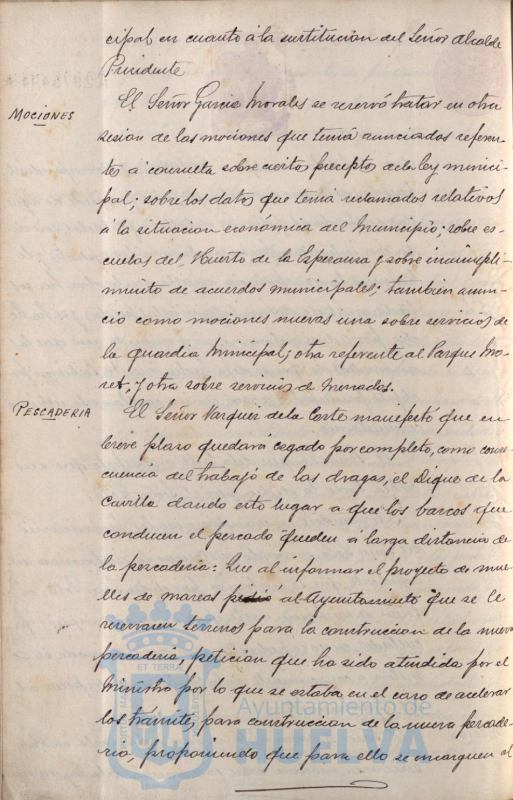 cipal en cuanto á la sustitucion del Señor Alcalde
Presidente
MOCIONES
El Señor Garcia Morales se reservó tratar en otra
sesion de las mociones que tenia anunciadas referen-
tes a consulta sobre ciertos preceptos de la ley munici-
pal; sobre los datos que tenia reclamados relativos
á la situacion económica del Municipio; sobre es-
cuelas del Huerto de la Esperanza y sobre incumpli-
miento de acuerdos municipales; tambien anun-
cio como mociones nuevas una sobre servicios de
la guardia Municipal; otra referente al Parque Mo-
ret, y otra sobre servicios de Mercados.
PESCADERIA
El Señor Vazquez de la Corte manifestó que en
breve plazo quedará cegado por completo, como conse-
cuencia del trabajo de las dragas, el Dique de la
dando esto lugar a que los barcos que
conducen el pescado queden á larga distancia de
la pescaderia: Que al informar el proyecto de mue-
lles de mareas pidió al Ayuntamiento que se le
reservasen terrenos para la construccion de la nueva
pescaderia, peticion que ha sido atendida por el
Ministro por lo que se estaba en el caso de acelerar
los trámites para construccion de la nueva pescade-
ria, proponiendo que para ello se encarguen al
ET TERRA
Ayuntamiento de
HUELVA